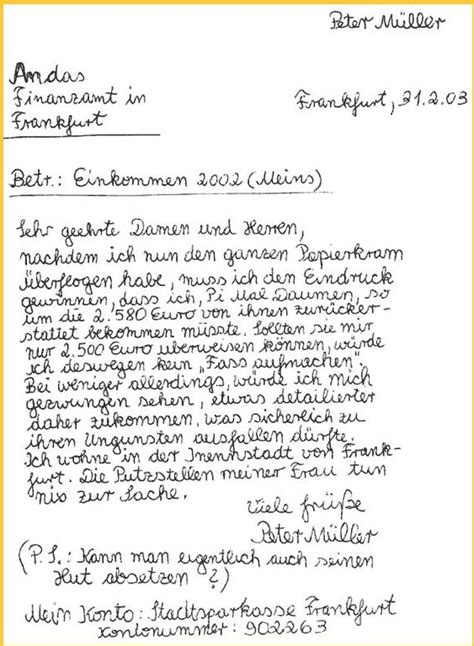 Peter Müller
An das
Finanzamt in
Frankfurt
Frankfurt, 31.2.03
Betr.: Einkommen 2002 (Meins)
Sehr geehrte Damen und Herren,
nachdem ich nun den ganzen Papierkram
überflogen habe, muss ich den Eindruck
gewinnen, dass ich, Pi Mal Daumen, so
um die 2.580 Euro von ihnen zurücker-
stattet bekommen müsste. Sollten sie mir
nur 2.500 Euro überweisen können, würde
ich deswegen kein „Fass aufmachen".
Bei weniger allerdings, würde ich mich
gezwungen sehen, etwas detailierter
daher zukommen, was sicherlich zu
ihren Ungunsten ausfallen dürfte.
Ich wohne in der Inennstadt von Frank-
furt. Die Putzstellen meiner Frau tun
nix zur Sache.
Viele Grüße
Peter Müller
(P.S.: Kann man eigentlich auch seinen
Hut absetzen?)
Mein Konto: Stadtsparkasse Frankfurt
Kontonummer: 902263